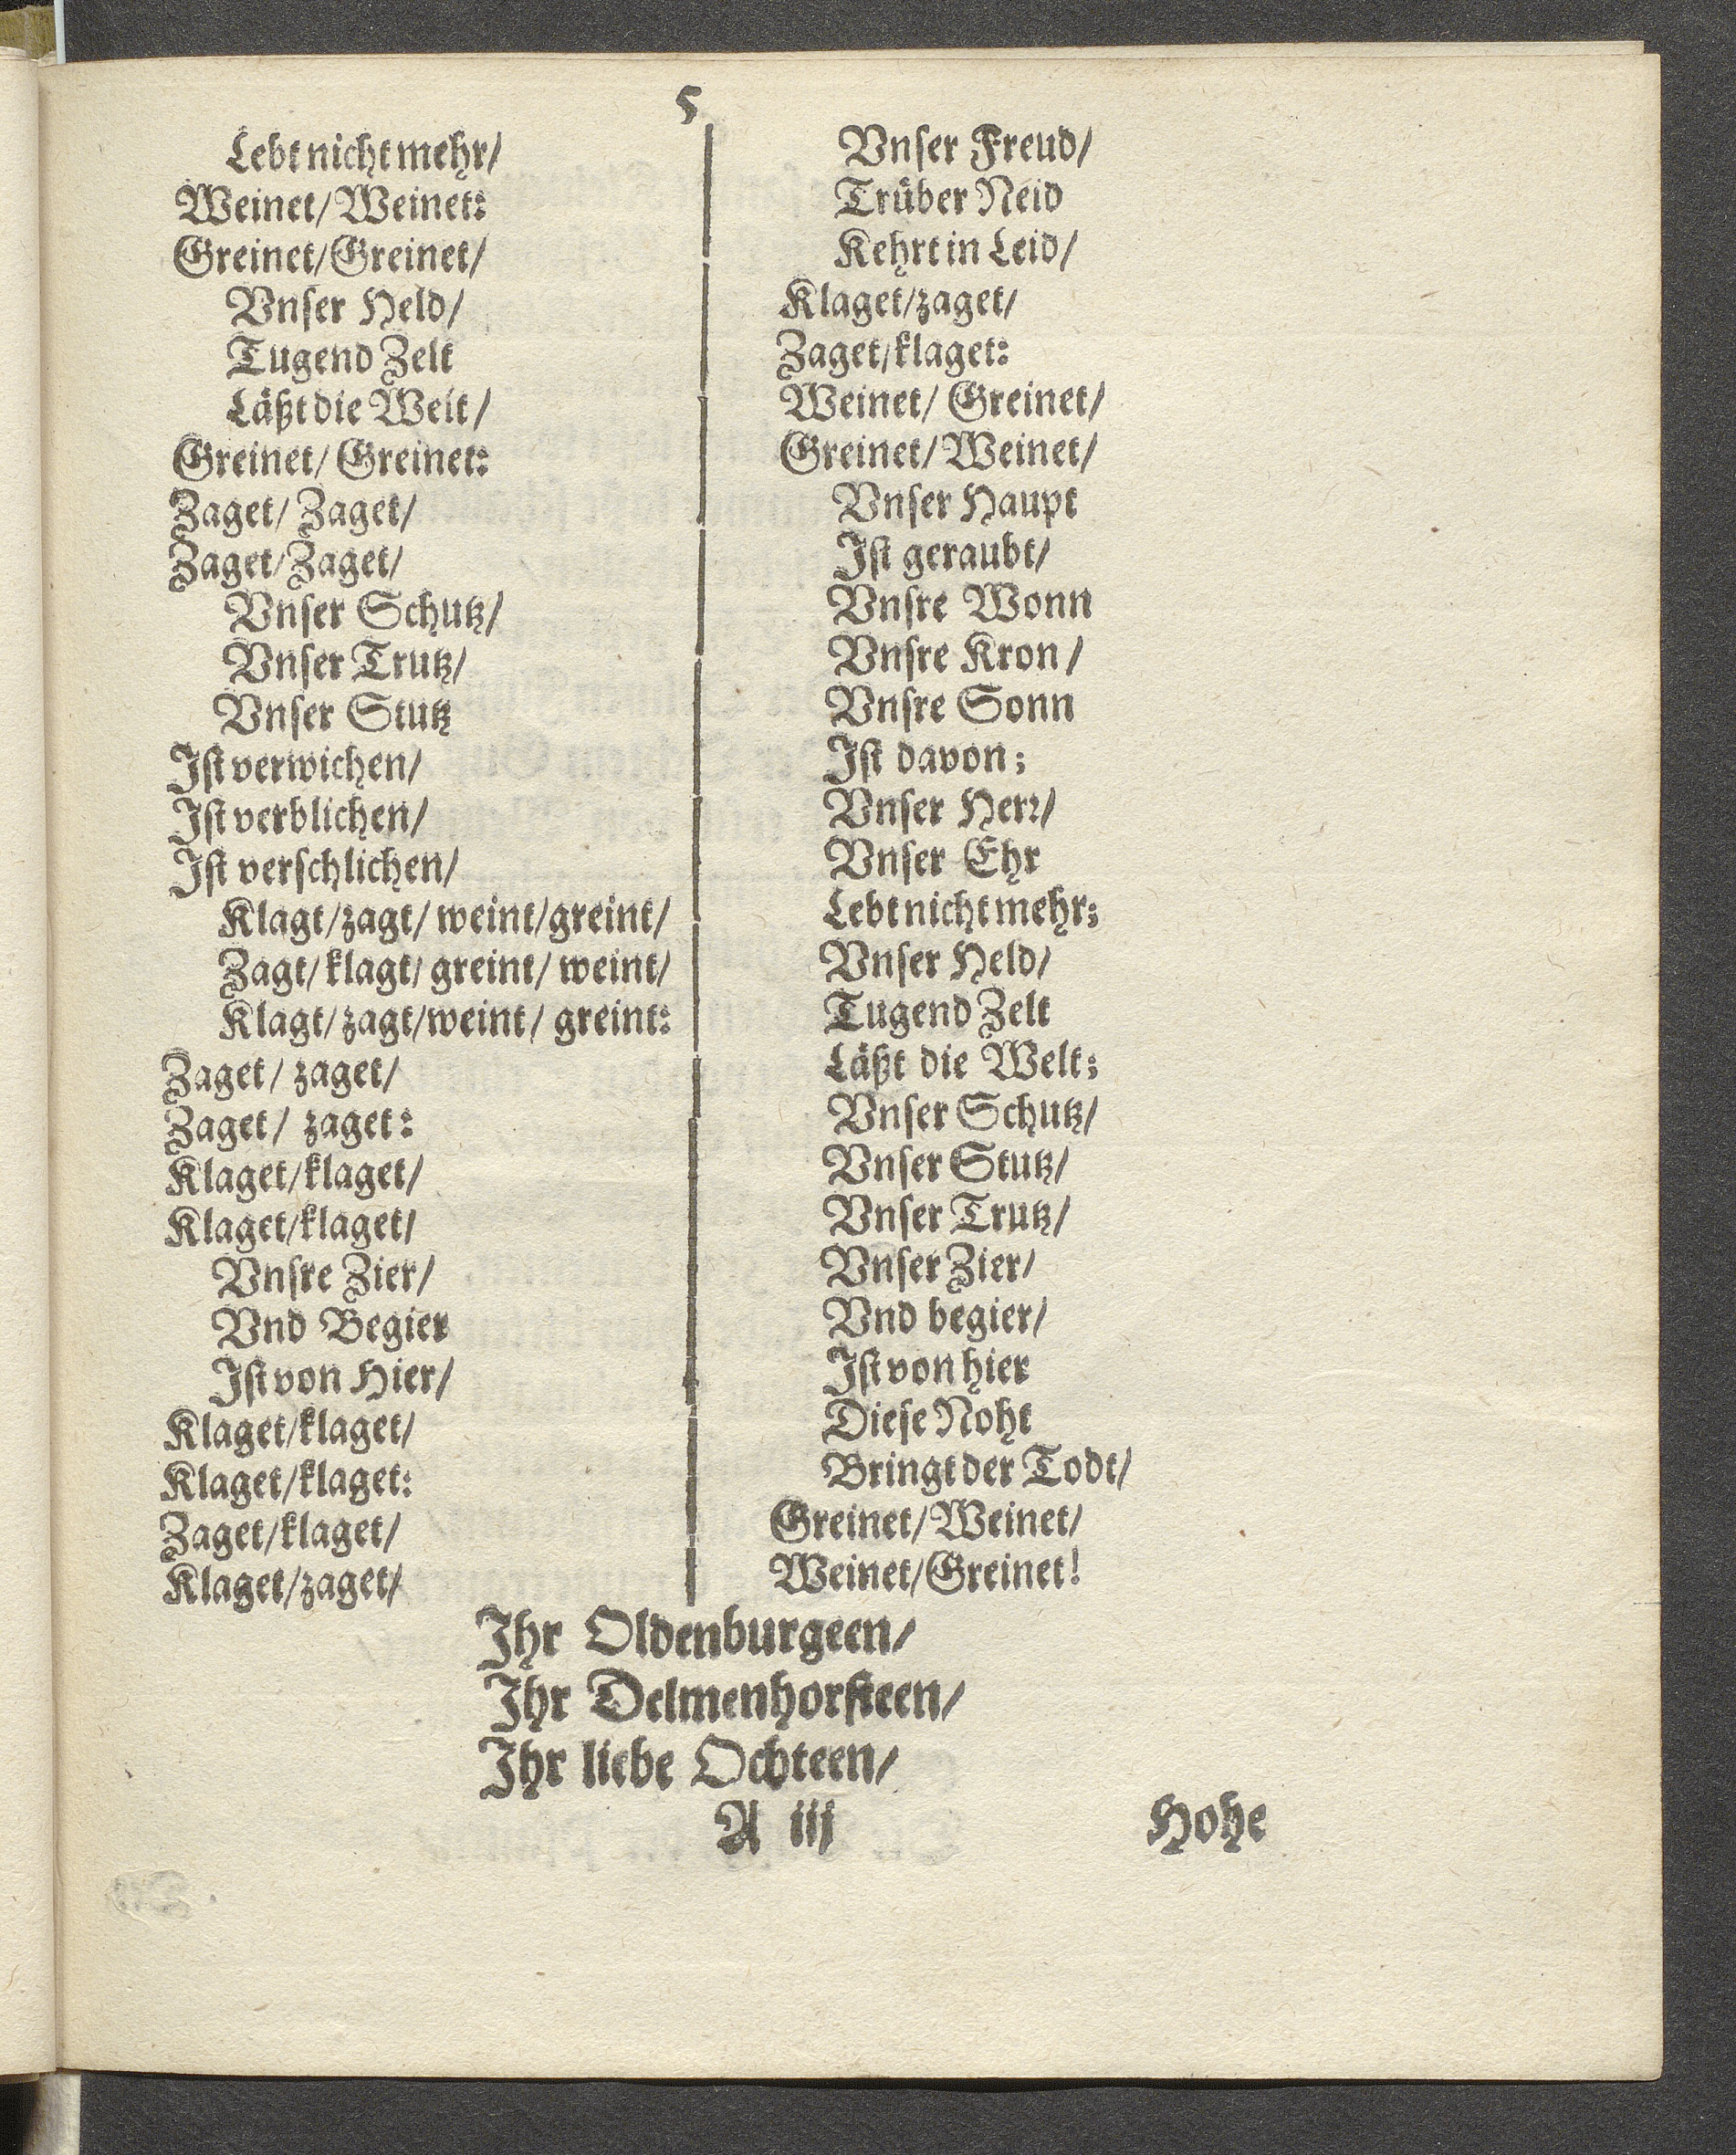 5
Lebt nicht mehr/
Weinet/ Weinet:
Greinet/ Greinet/
Vnser Held/
Tugend Zelt
Läßt die Welt/
Greinet/ Greinet:
Zaget/ Zaget/
Zaget/ Zaget/
Vnser Schutz/
Vnser Trutz/
Vnser Stutz
Ist verwichen/
Ist verblichen/
Ist verschlichen/
Klagt/ zagt/ weint/ greint/
Zagt/ klagt/ greint/ weint/
Klagt/ zagt/ weint/ greint:
Zaget/ zaget/
Zaget/ zaget:
Klaget/ klaget/
Klaget/ klaget/
Vnsre Zier/
Vnd Begier
Ist von Hier/
Klaget/ klaget/
Klaget/ klaget:
Zaget/ klaget/
Klaget/ zaget/
Vnser Freud/
Trüber Neid
Kehrt in Leid/
Klaget/ zaget/
Zaget/ klaget:
Weinet/ Greinet/
Greinet/ Weinet/
Vnser Haupt
Ist geraubt/
Vnsre Wonn
Vnsre Kron/
Vnsre Sonn
Ist davon;
Vnser Herr/
Vnser Ehr
Lebt nicht mehr;
Vnser Held/
Tugend Zelt
Läßt die Welt;
Vnser Schutz/
Vnser Stutz/
Vnser Trutz/
Vnser Zier/
Vnd begier/
Ist von hier
Diese Noht
Bringt der Todt/
Greinet/ Weinet/
Weinet/ Greinet!
Ihr Oldenburgeen/
Ihr Delmenhorsteen/
Ihr liebe Ochteen/
A iij
Hohe